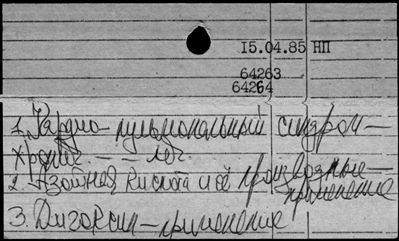 15.04.85 НП
64263
64264
1. Кардио-пульмональный синдром —
хронич. — — леч.
2. Азотная кислота и её производные —
применение
3. Дигоксин — применение